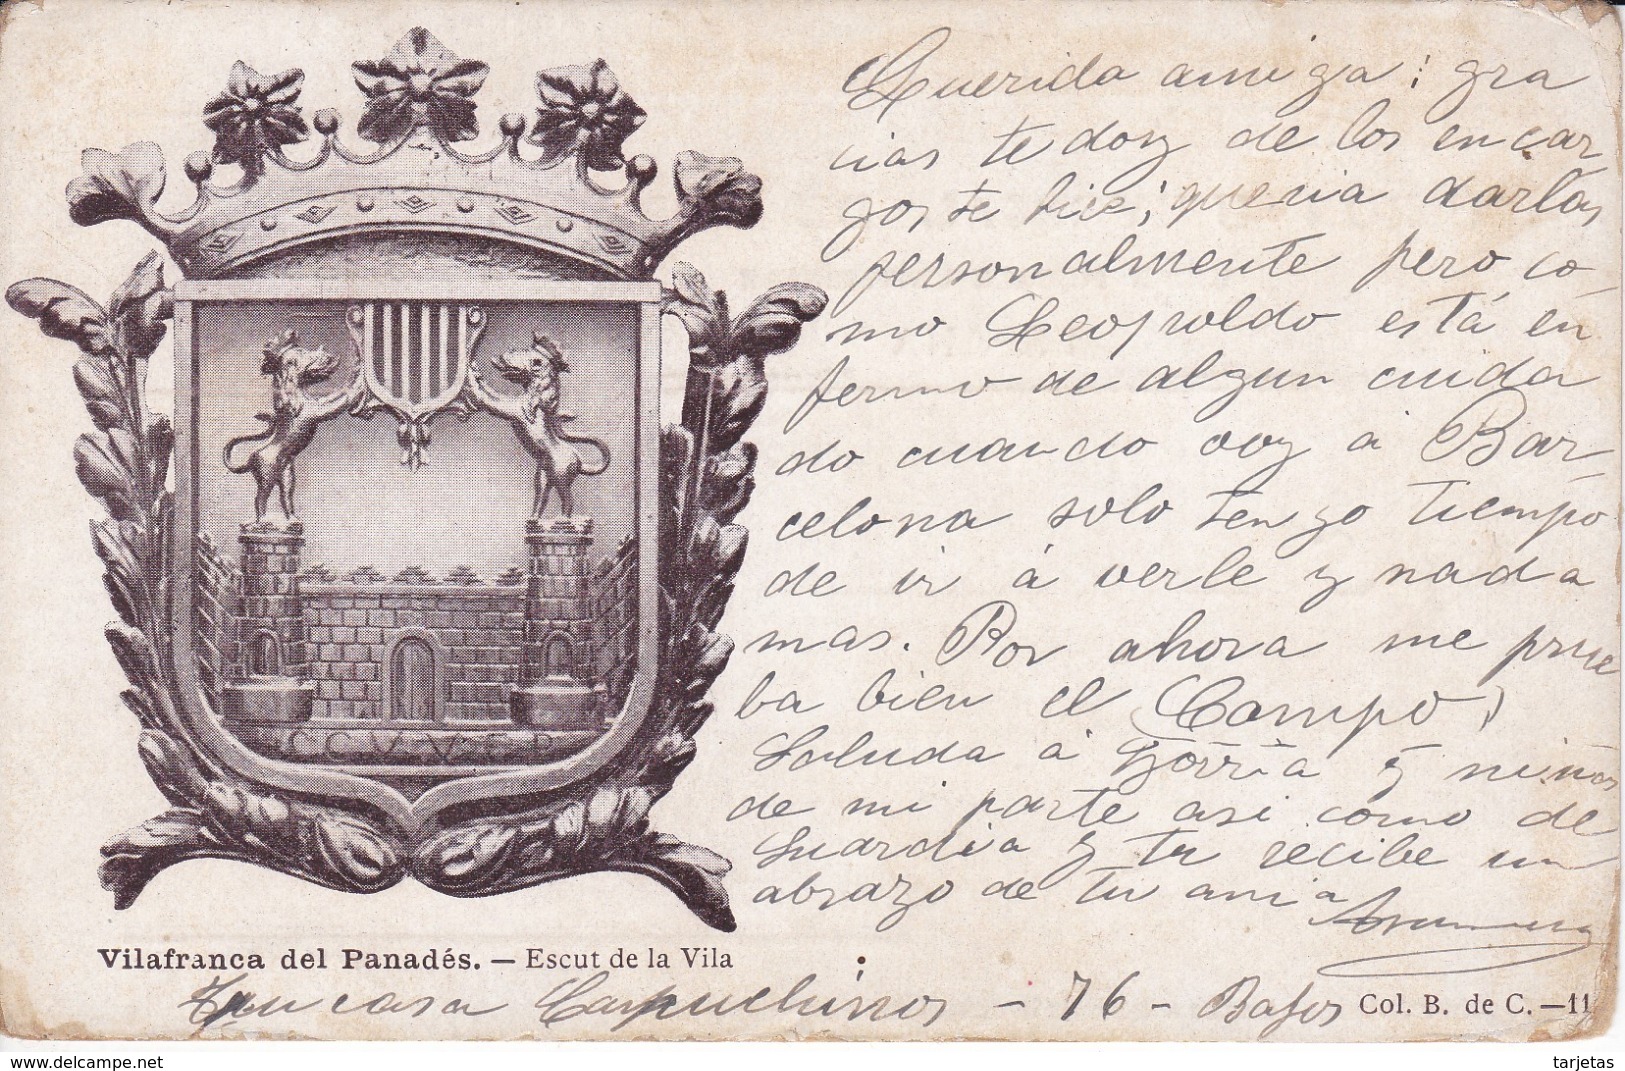 Querida amiga: gra
cias te doy de los encar
gos te hice, queria darlas
personalmente pero co
mo Leopoldo está en
fermo de algun cuida
do cuando voy á Bar-
celona solo tengo tiempo
de ir á verle y nada
mas. Por ahora me prue
ba bien el Campo,
Saluda á Borria y niños
de mi parte asi como de
Guardia y tu recibe un
abrazo de tu amia
CCVVFP
Vilafranca del Panadés. — Escut de la Vila
Tu casa Capuchinos - 76 - Bajos
Col. B. de C. —11
www.todocoleccion.com/vila
tarjetas